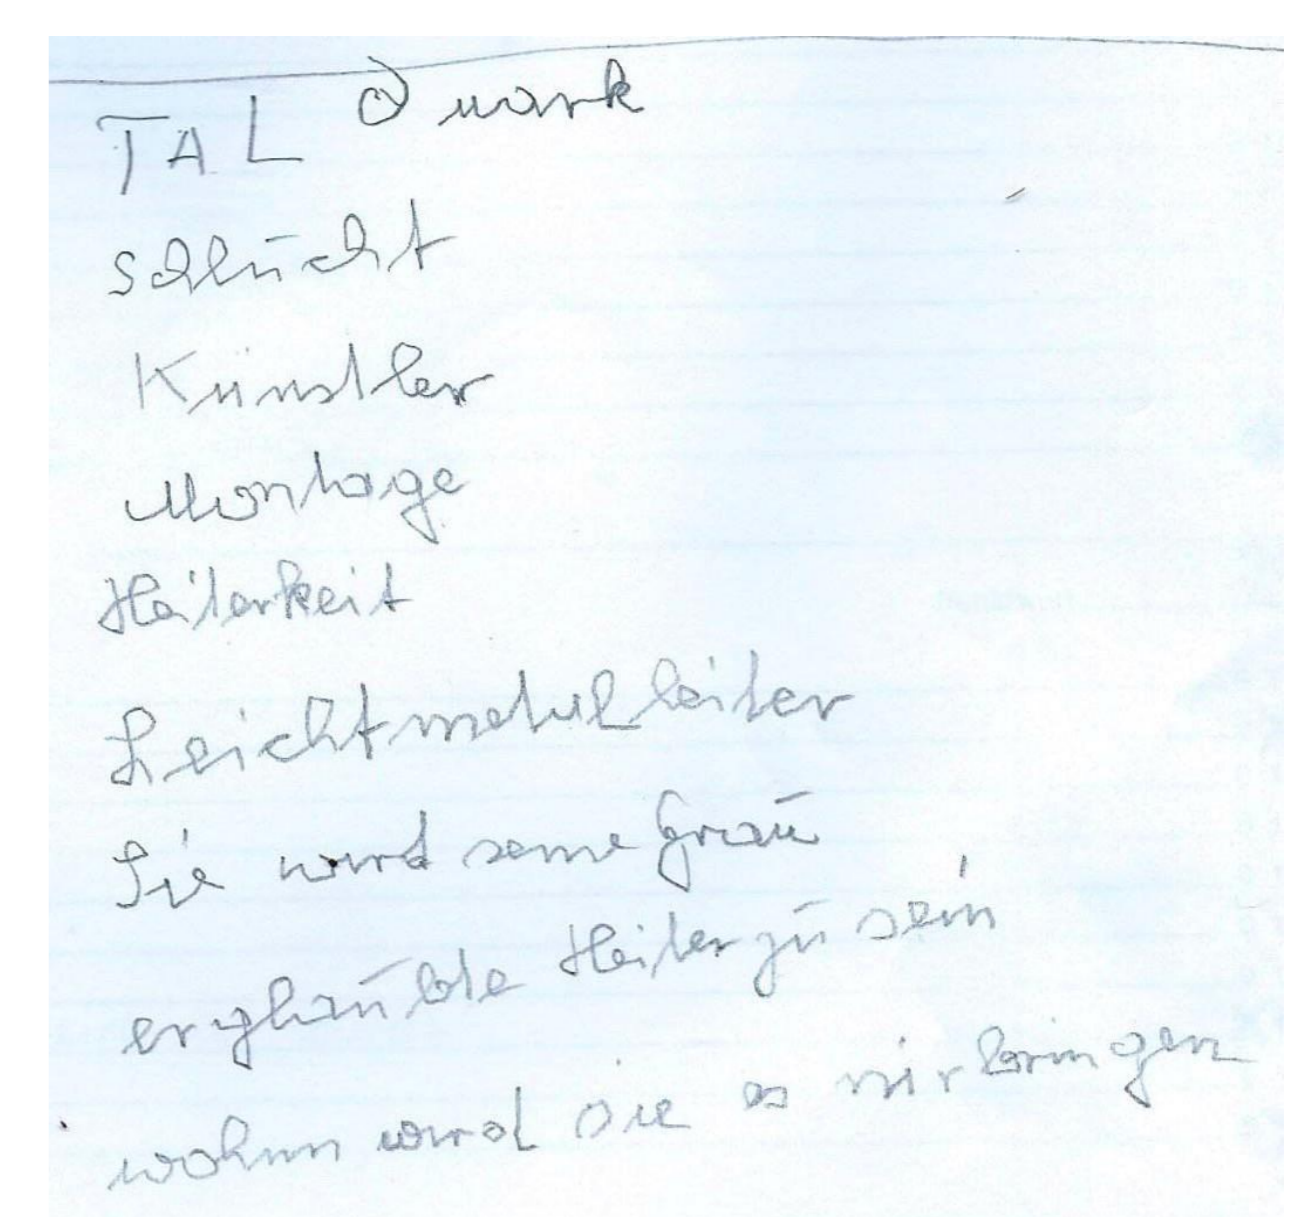 TAL Quark
Schlucht
Künstler
Montage
Heiterkeit
Leichtmetalleiter
Sie wird seine Frau
er glaubte Heiler zu sein
wohin wird sie es mir bringen